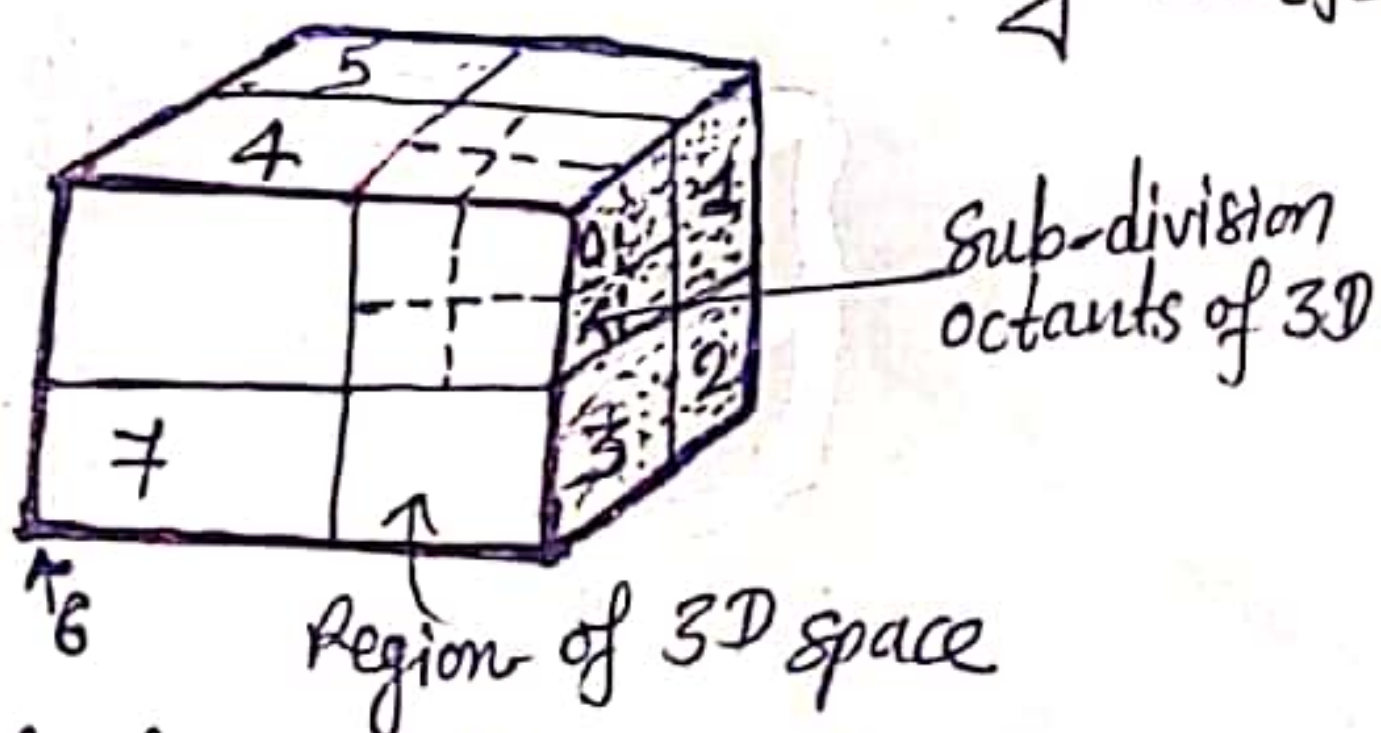 5
4
1
0
2
3
7
6
Sub-division
octants of 3D
Region of 3D space